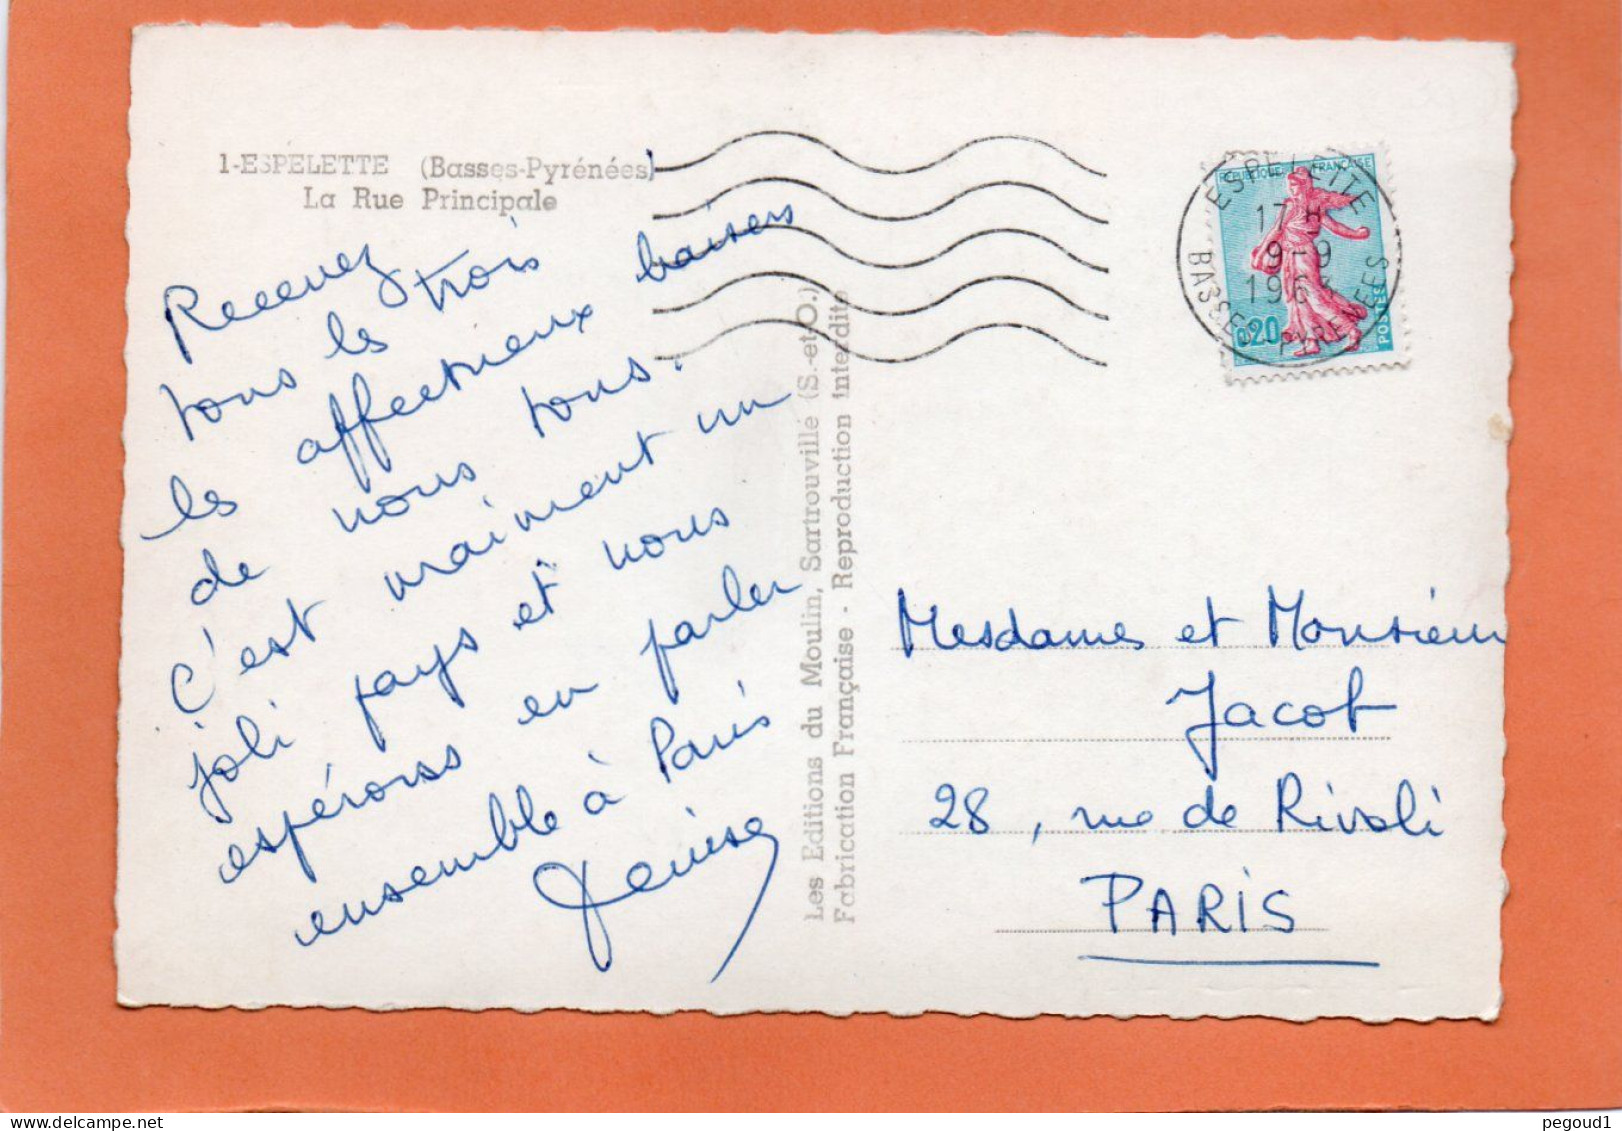 1-ESPELETTE (Basses-Pyrénées)
La Rue Principale
Recevez
tous les trois
les affectueux baisers
de nous tous.
C'est vraiment un
joli pays et nous
espérons en parler
ensemble à Paris
Denise
Les Editions du Moulin, Sartrouville (S.-et-O.)
Fabrication Française - Reproduction interdite
REPUBLIQUE FRANÇAISE
0,20
POSTES
ESPELETTE
17 H
9-9
1963
BASSES-PYRENEES
Mesdames et Monsieur
Jacob
28, rue de Rivoli
PARIS
pegoud1